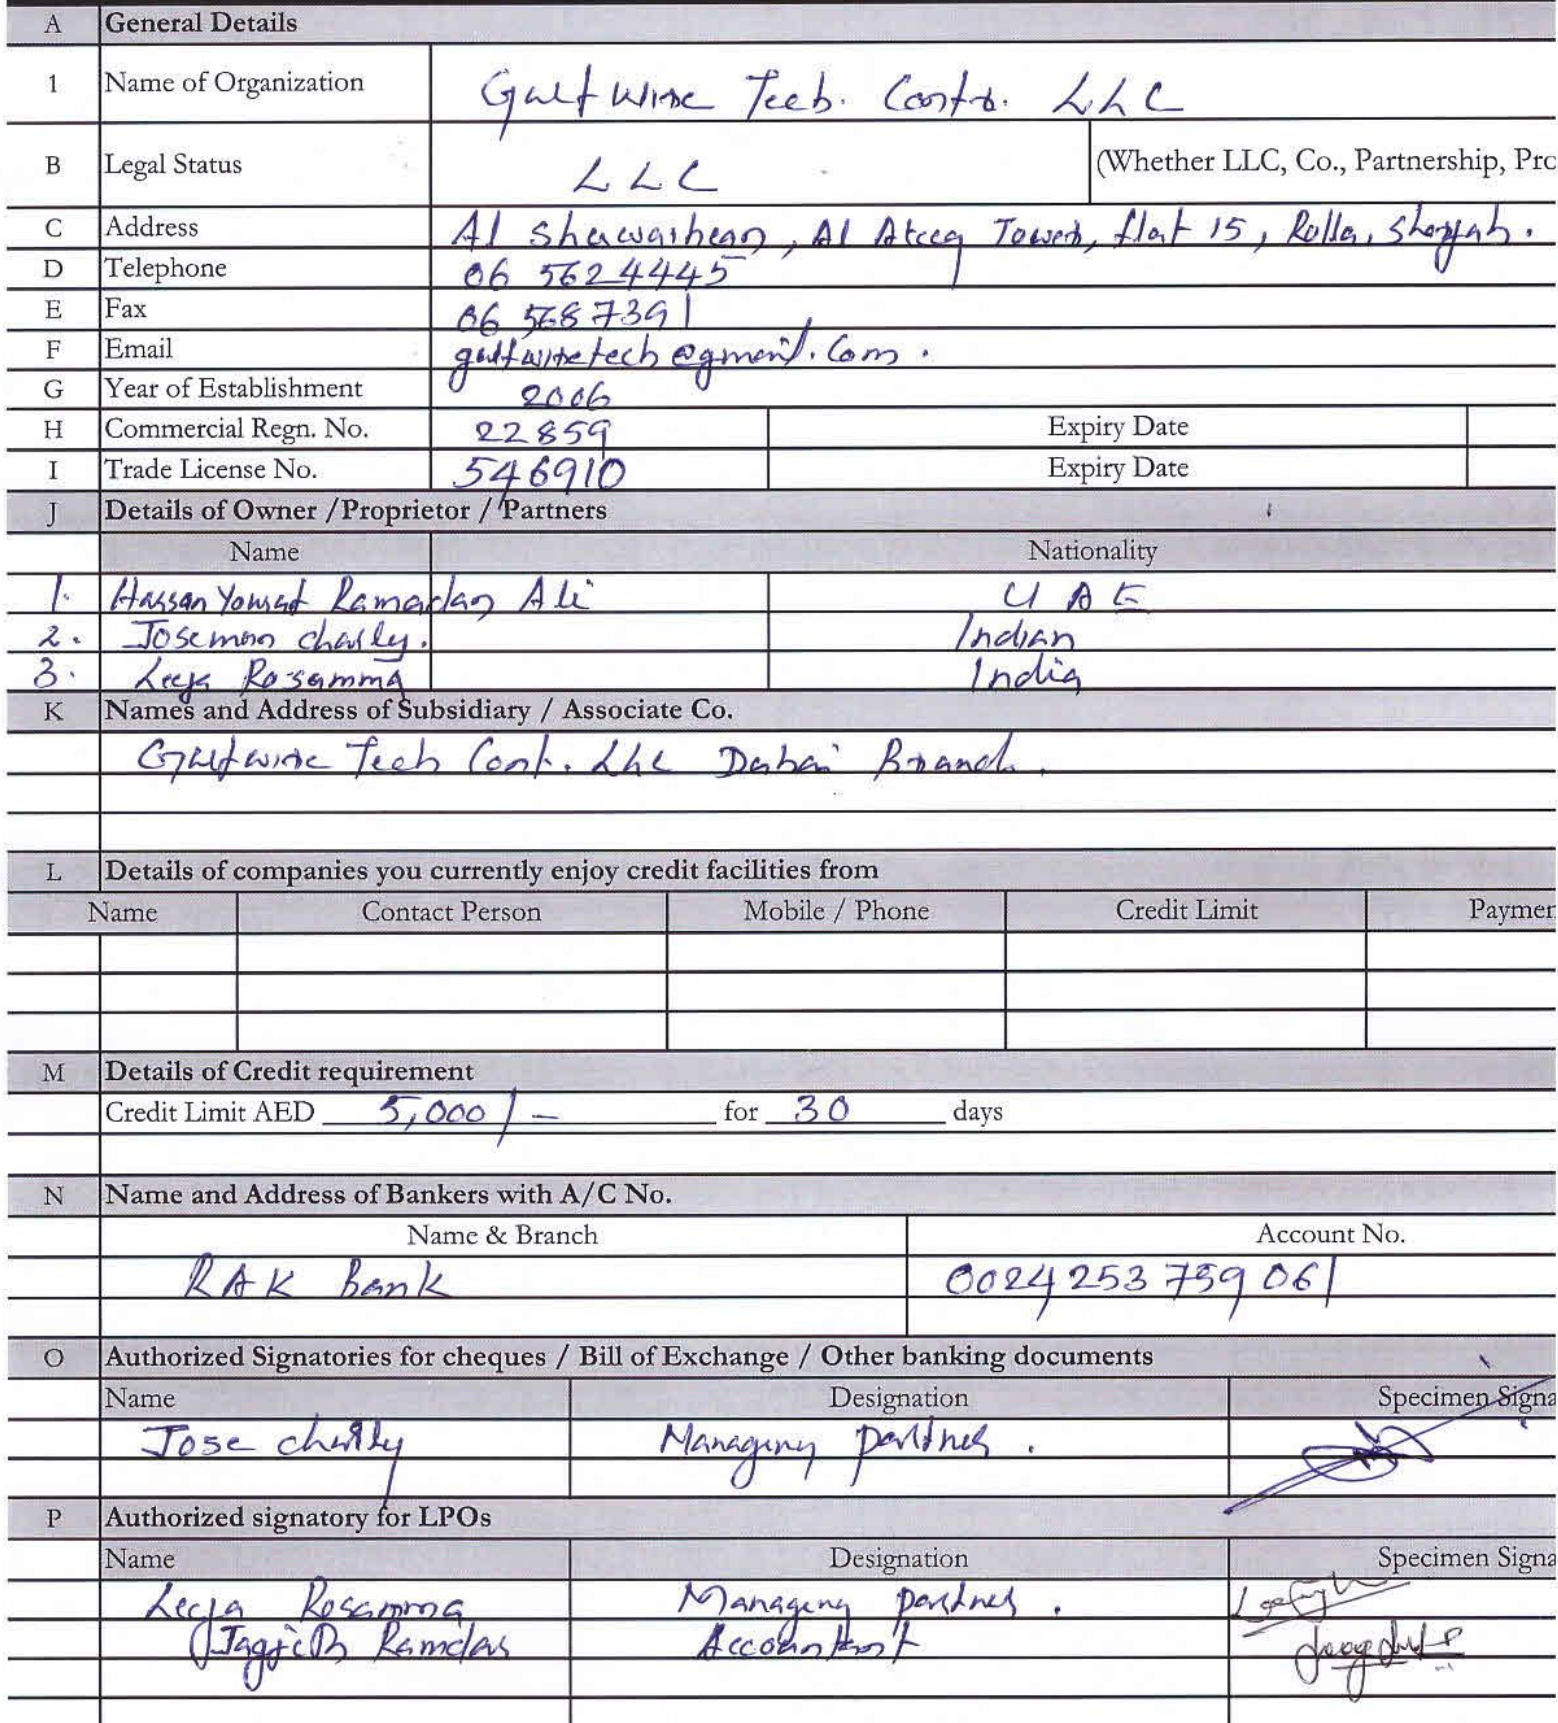 A General Details
1 Name of Organization Gulfwire Tech. Contr. LLC
B Legal Status LLC (Whether LLC, Co., Partnership, Pro
C Address Al Shuwaihean, Al Ateeq Tower, flat 15, Rolla, Sharjah.
D Telephone 06 5624445
E Fax 06 5687391
F Email gulfwiretech@gmail.com.
G Year of Establishment 2006
H Commercial Regn. No. 22859 Expiry Date
I Trade License No. 546910 Expiry Date
J Details of Owner /Proprietor / Partners
Name Nationality
1. Hassan Yousuf Ramadan Ali UAE
2. Josemon charly. Indian
3. Leeja Rosamma India
K Names and Address of Subsidiary / Associate Co.
Gulfwire Tech Cont. LLC Dubai Branch.
L Details of companies you currently enjoy credit facilities from
Name Contact Person Mobile / Phone Credit Limit Paymen
M Details of Credit requirement
Credit Limit AED 5,000/- for 30 days
N Name and Address of Bankers with A/C No.
Name & Branch Account No.
RAK Bank 0024 253 759 061
O Authorized Signatories for cheques / Bill of Exchange / Other banking documents
Name Designation Specimen Signa
Jose charly Managing partner.
P Authorized signatory for LPOs
Name Designation Specimen Signa
Leeja Rosamma Managing partner.
Ramdas Accountant